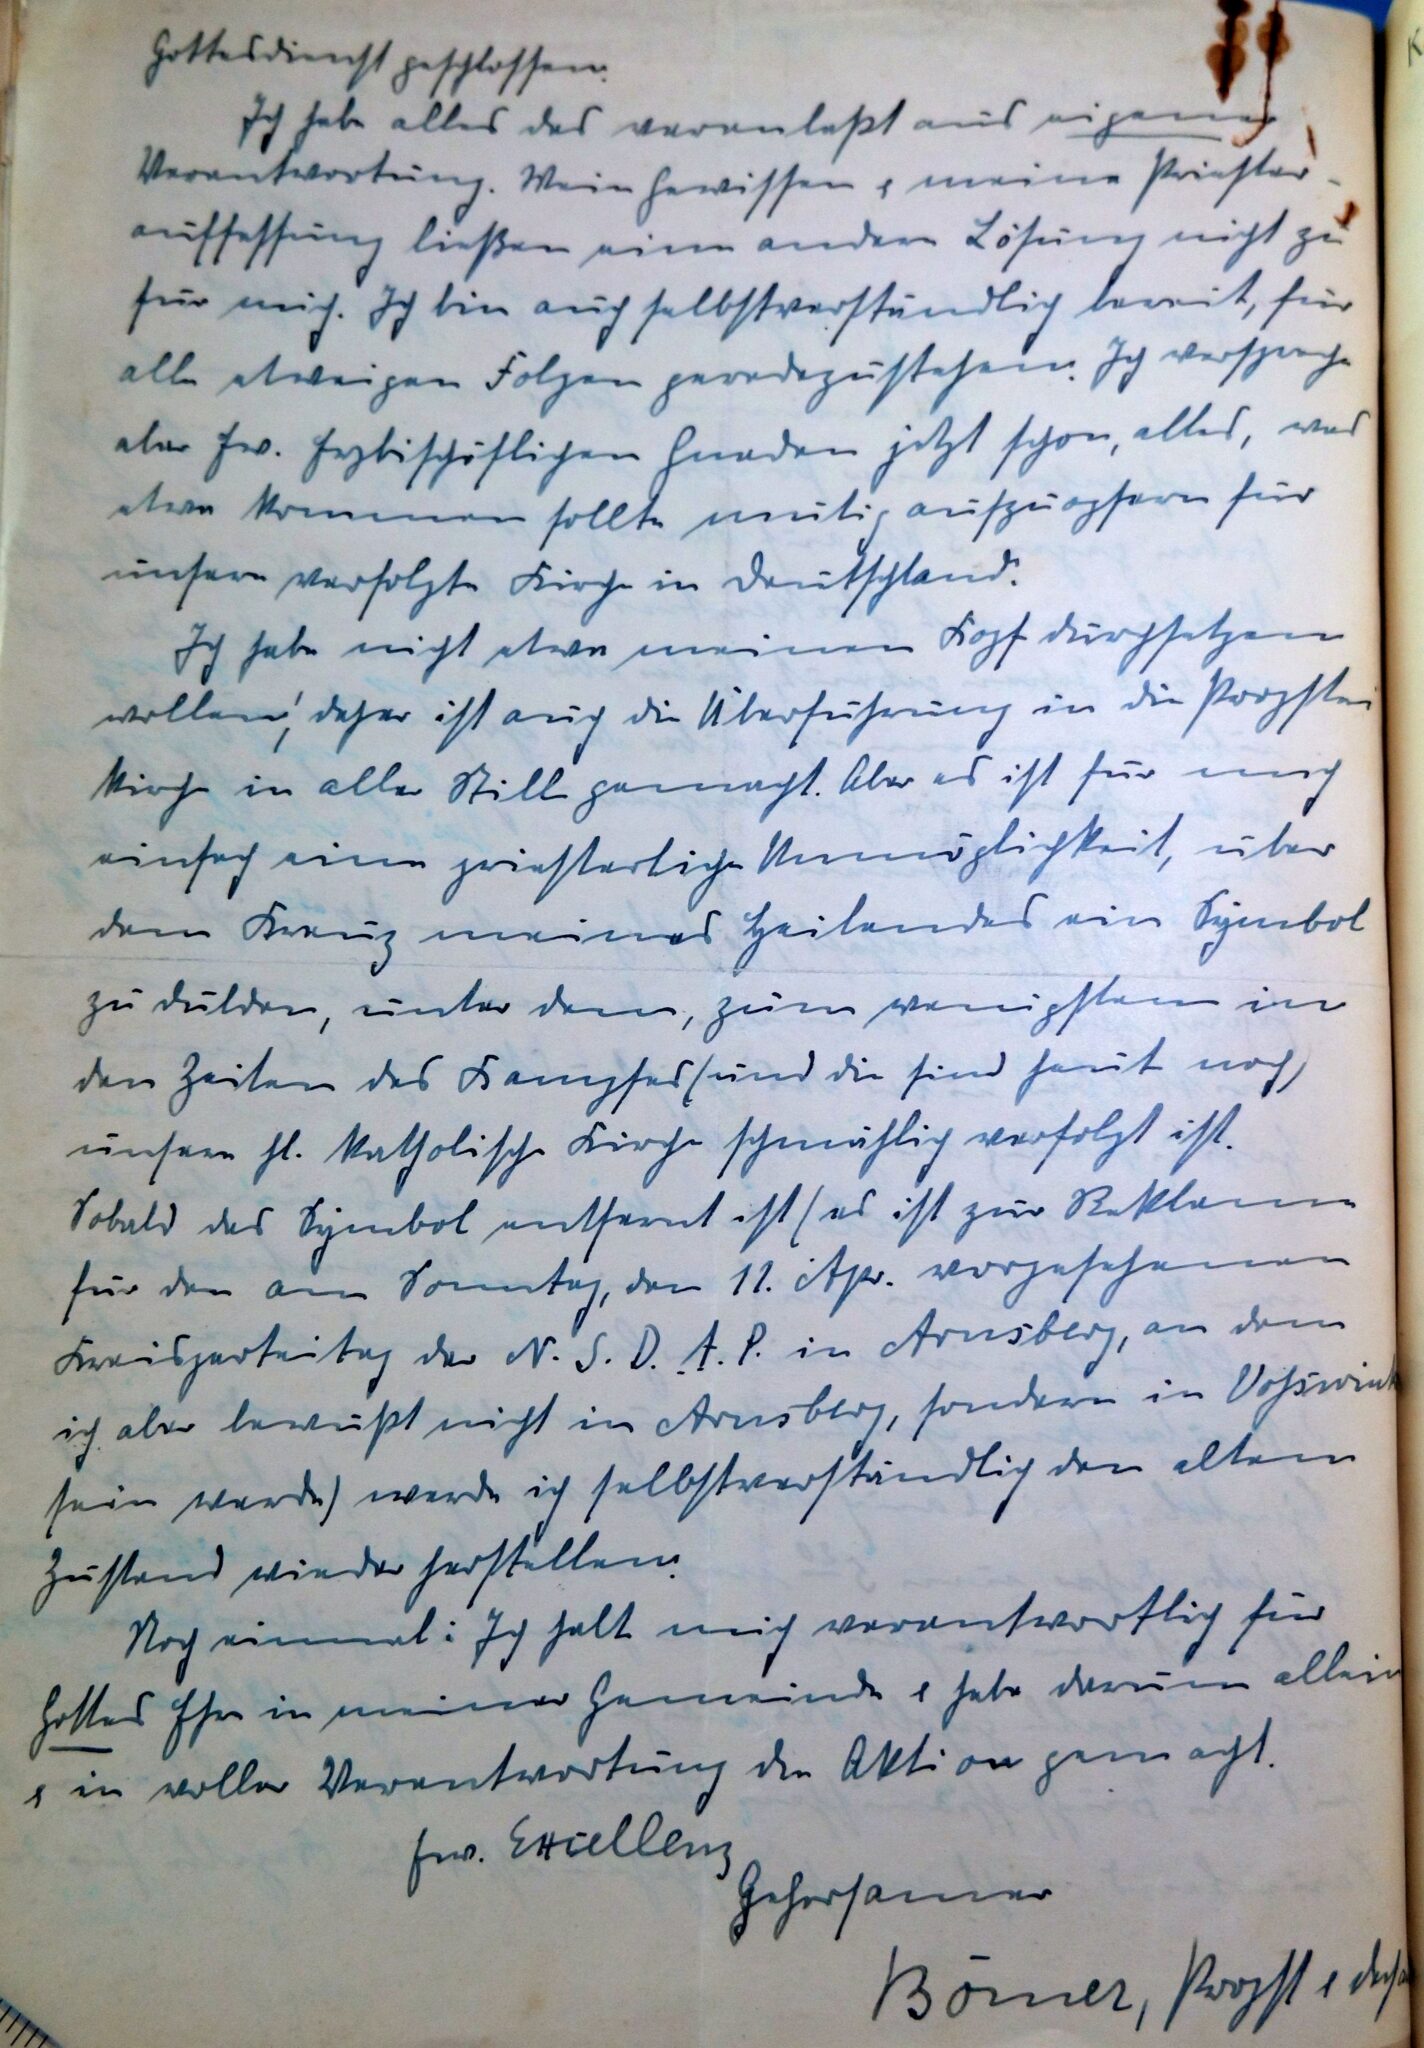 Gottesdienst geschlossen.
Ich habe alles das veranlaßt aus eigener
Verantwortung. Mein Gewissen & meine Priester-
auffassung ließen eine andere Lösung nicht zu
für mich. Ich bin auch selbstverständlich bereit, für
alle etwaigen Folgen geradezustehen. Ich verspreche
aber Ew. Erzbischöflichen Gnaden jetzt schon, alles, was
etwa kommen sollte mutig aufzuopfern für
unsere verfolgte Kirche in Deutschland.
Ich habe nicht etwa meinen Kopf durchsetzen
wollen!, daher ist auch die Überführung in die Propstei
kirche in aller Stille gemacht. Aber es ist für mich
einfach eine priesterliche Unmöglichkeit, über
dem Kreuz meines Heilandes ein Symbol
zu dulden, unter dem, zum wenigsten in
den Zeiten des Kampfes (und die sind heute noch)
unsere hl. katholische Kirche schmählich verfolgt ist.
Sobald das Symbol entfernt ist (es ist zur Reklame
für den am Sonntag, den 11. Apr. vorgesehenen
Kreisparteitag der N. S. D. A. P. in Arnsberg, an dem
ich aber bewußt nicht in Arnsberg, sondern in Voßwink
sein werde) werde ich selbstverständlich den alten
Zustand wieder herstellen.
Noch einmal: Ich halte mich verantwortlich für
Gottes Ehre in meiner Gemeinde & habe darum allein
& in voller Verantwortung die Aktion gemacht.
Ew. Excellenz
Gehorsamer
Bömer, Propst &